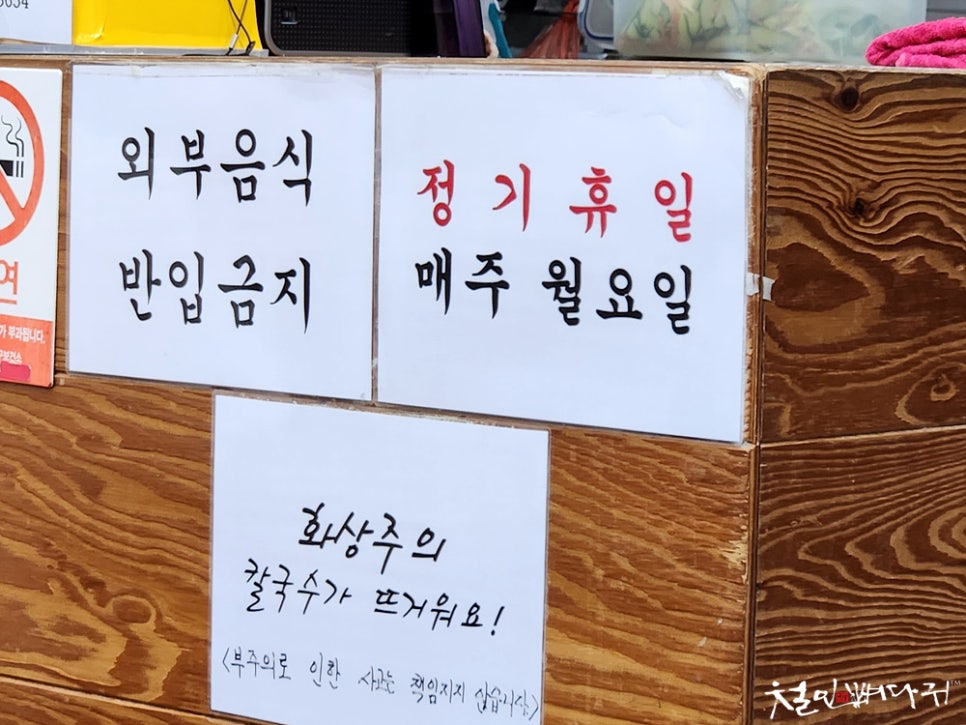 외부음식
반입금지
정기휴일
매주 월요일
연
가 부과됩니다.
구보건소
화상주의
칼국수가 뜨거워요!
<부주의로 인한 사고는 책임지지 않습니다>
철인뼈다귀™